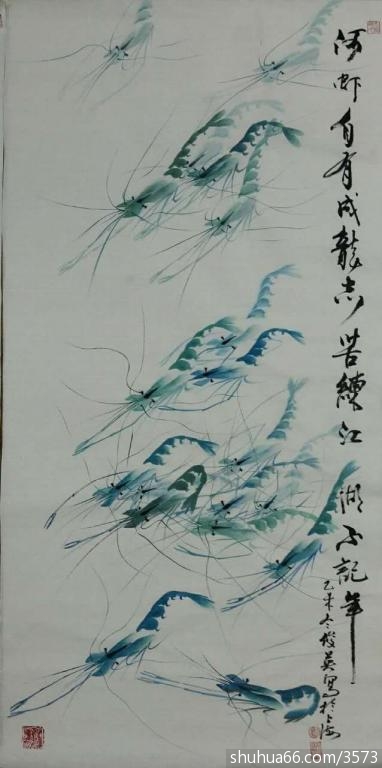 河虾自有成龍志苦練江湖不記年
乙未冬俊英寫於上海
shuhua66.com/3573